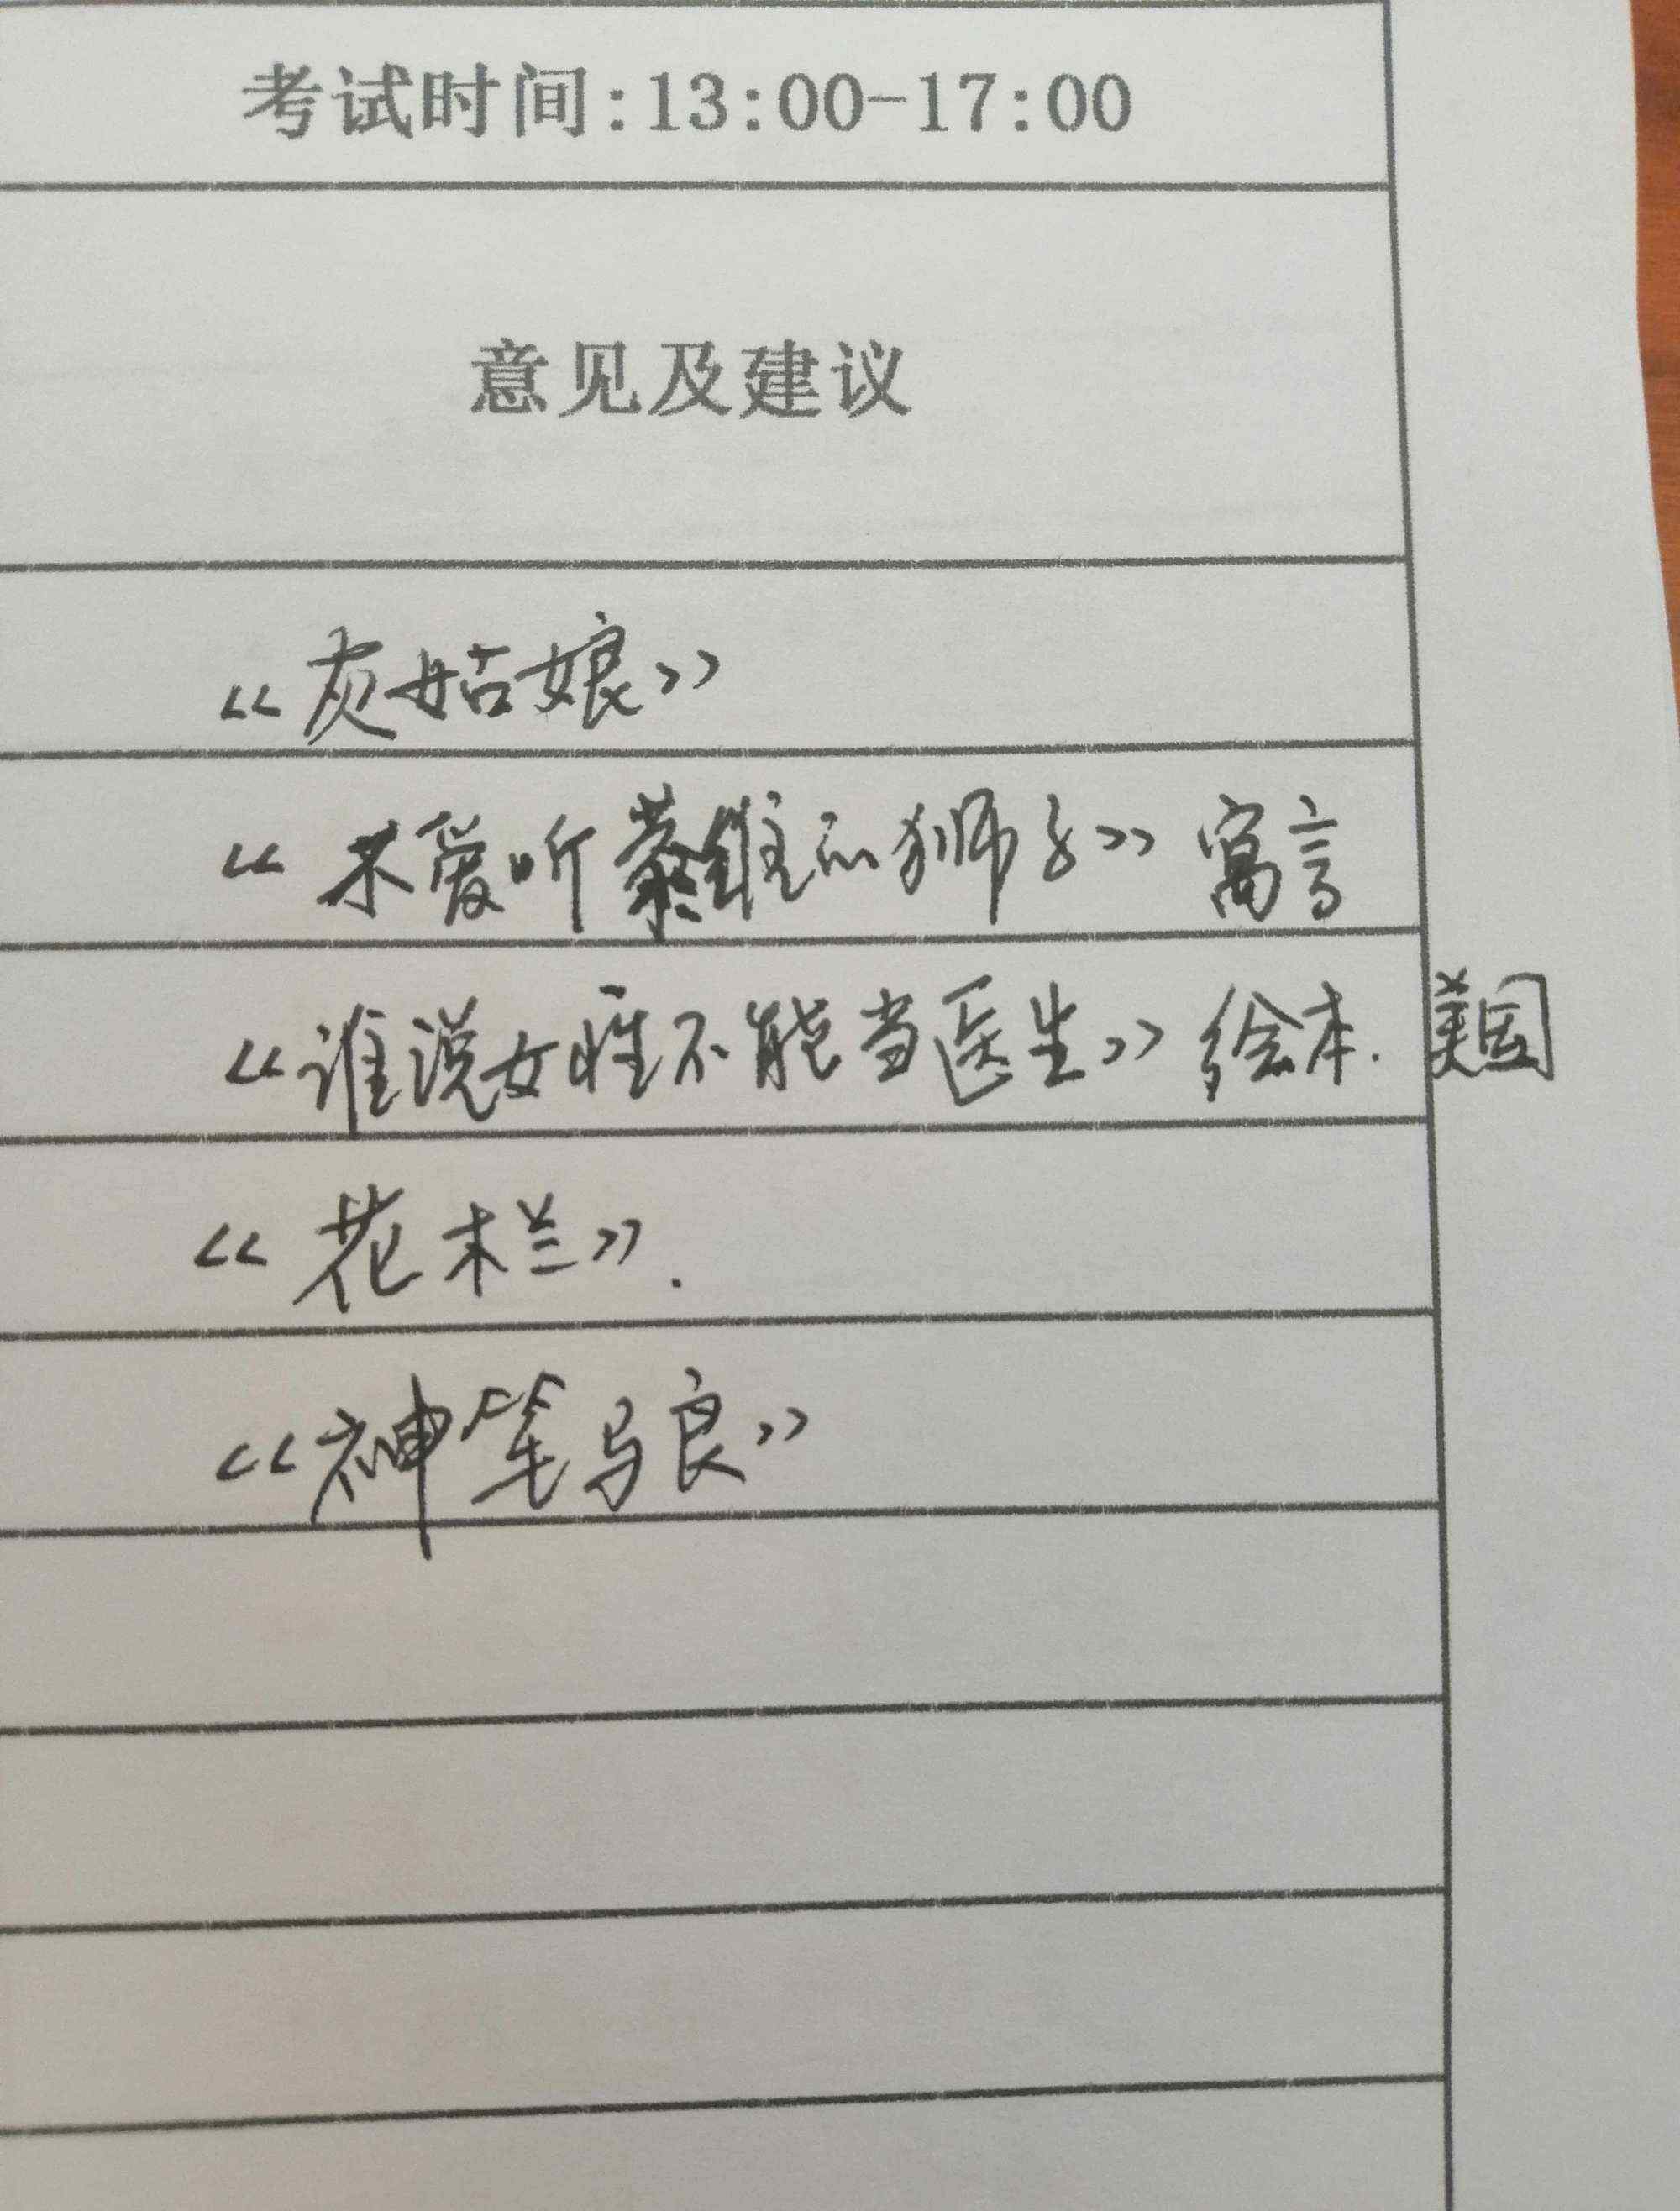 考试时间:13:00-17:00
意见及建议
《灰姑娘》
《不爱听的狮子》寓言
《谁说女性不能当医生》绘本.美国
《花木栏》.
《神笔马良》